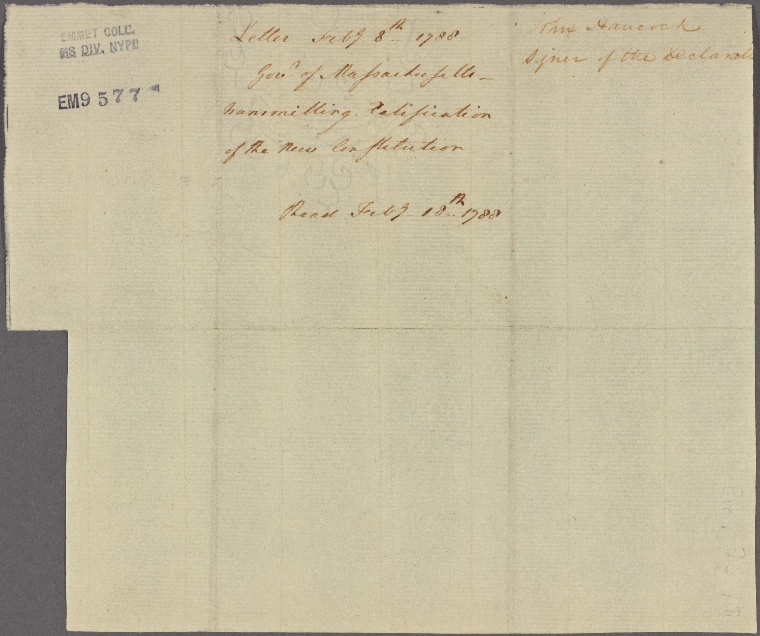 EMMET COLL.
MS DIV. NYPL
EM9577
Letter Feby 8th 1788
Govr of Massachusetts
transmitting Ratification
of the New Constitution
Read Feby 18th 1788
John Hancock
Signer of the Declarati